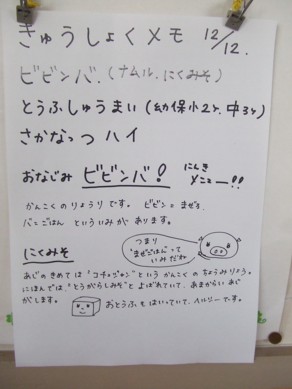 きゅうしょくメモ 12/12.
ビビンバ.(ナムル、にくみそ)
とうふしゅうまい(幼保小2ケ.中3ケ)
さかなっつハイ
おなじみ ビビンバ! にんき
メニュー!!
かんこくのりょうりです. ビビン=まぜる.
バ=ごはん といういみが あります。
つまり
"まぜごはん"って
いみだね
にくみそ
あじのきめては"コチュジャン"というかんこくのちょうみりょう。
にほんでは"とうがらしみそ"とよばれていて、あまからいあじ
がします。
おとうふもはいっていて、ヘルシーです。